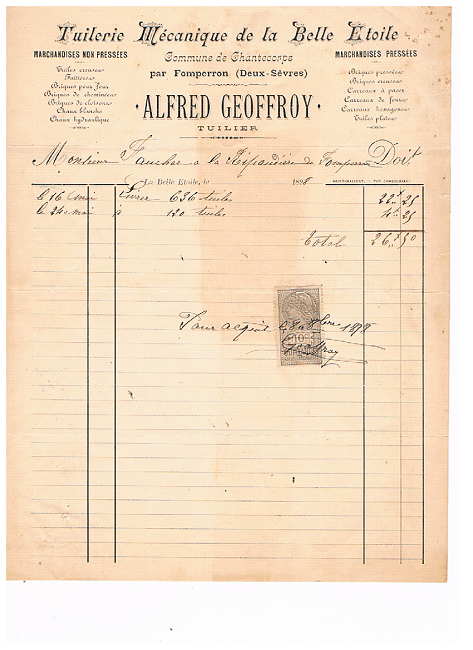 Tuilerie Mécanique de la Belle Etoile
Commune de Chantecorps
par Fomperron (Deux-Sèvres)
MARCHANDISES NON PRESSÉES
Tuiles creuses
Faîtières
Briques pour four
Briques de cheminées
Briques de cloisons
Chaux blanche
Chaux hydraulique
MARCHANDISES PRESSÉES
Briques pressées
Briques creuses
Carreaux à paver
Carreaux de fours
Carreaux hexagones
Tuiles plates
ALFRED GEOFFROY
TUILIER
Monsieur Faucher a la de Fomperron Doit
La Belle Etoile, le 1898
le 16 mai Livrer 636 tuiles 22 25
le 24 mai 120 tuiles 4 25
Total 26 50
Pour acquit le 8 1898
10
Geoffroy